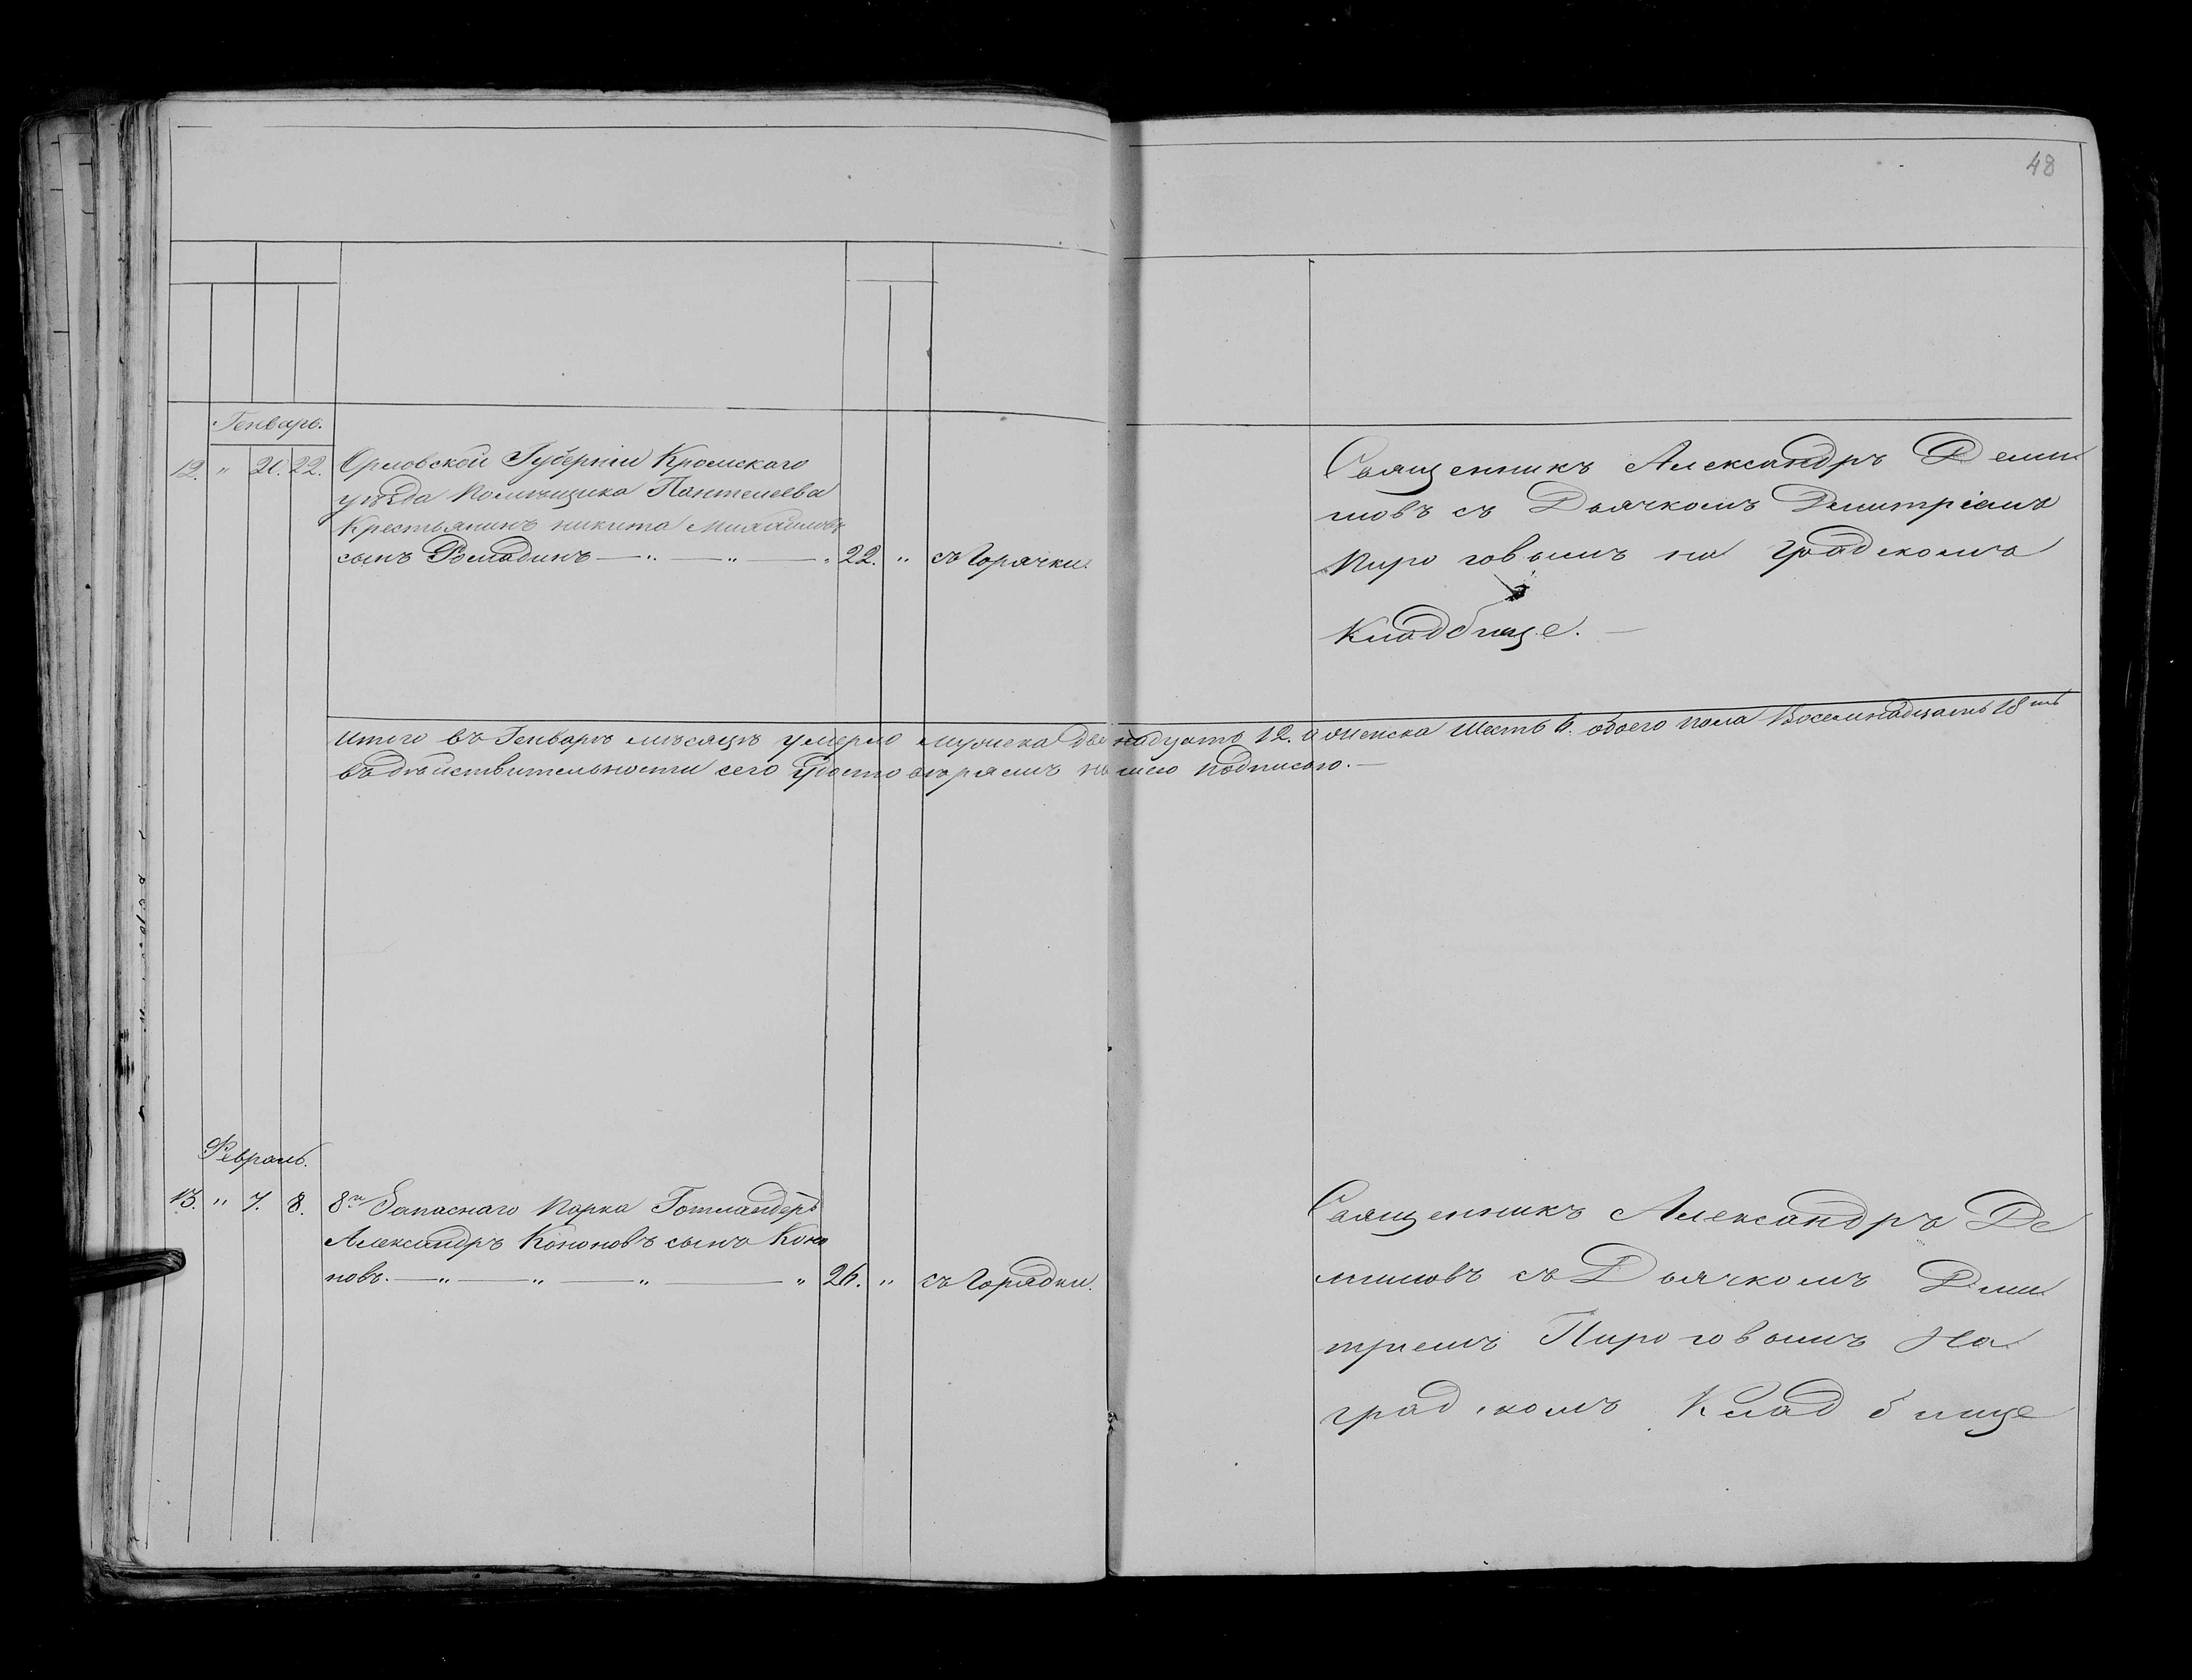 48
Генварь.
12. " 21. 22. Орловской Губерніи Кромскаго
уѣзда Помѣщика Пантелеева
Крестьянинъ никита Михайловъ
сынъ — " — " — " 22. " съ Горячки.
Священникъ Александръ Деми
повъ съ Дьячкомъ Димитріемъ
Пироговымъ на Градскомъ
Кладбище. —
Итого въ Генварѣ мѣсяцѣ умерло мужеска двенадцать 12. а женска Шесть 6. обоего пола Восемнадцать 18ть
въ действительности сего Удостоверяемъ нашею подписью. —
Февраль.
13. " 7. 8. 8го Запаснаго Парка Готландеръ
Александръ Кононовъ сынъ Коно
новъ. — " — " — " — " 26. " съ Горячки.
Священникъ Александръ Де
миповъ съ Дьячкомъ Дми
триемъ Пироговымъ На
градскомъ Кладбище